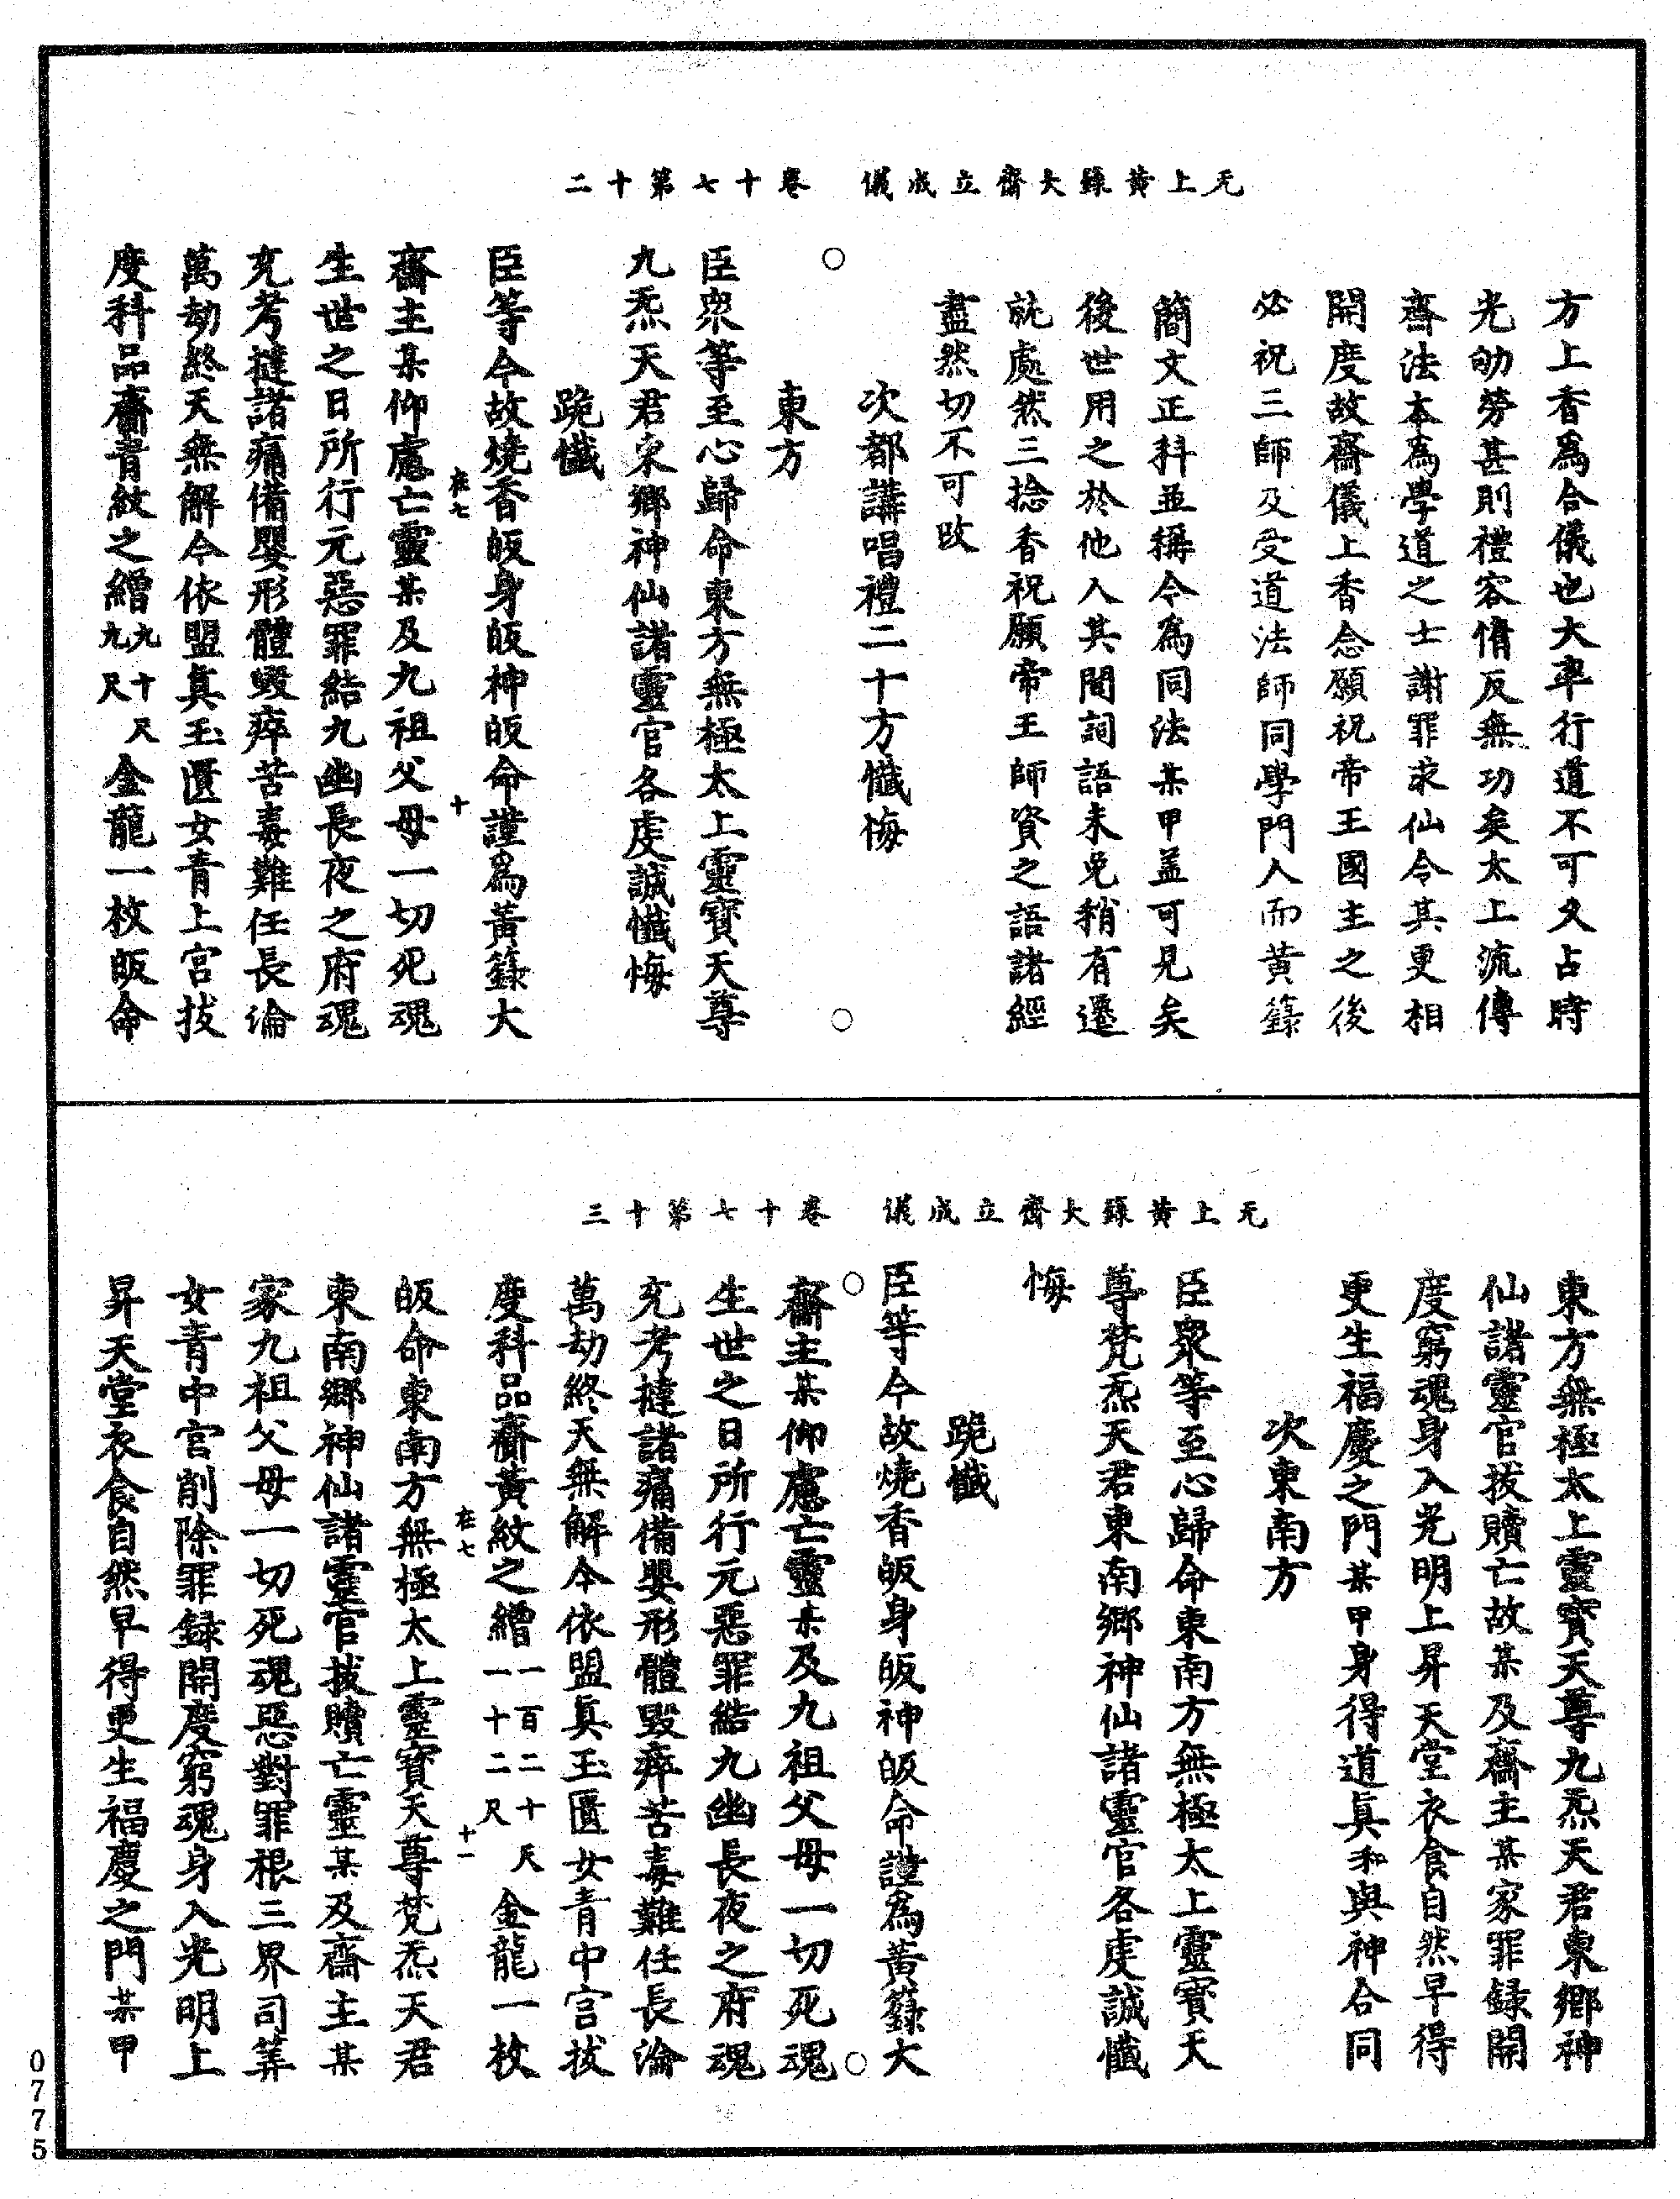 无上黃籙大齋立成儀　卷十七第十二
方上香為合儀也大率行道不可久占時
光劬勞甚則禮容惰反無功矣太上流傳
齋法本為學道之士謝罪求仙令其更相
開度故齋儀上香念願祝帝王國主之後
必祝三師及受道法師同學門人而黃籙
簡文正科並稱令為同法某甲益可見矣
後世用之於他人其間詞語未免稍有遷
就處然三捻香祝願帝王師資之語諸經
盡然切不可改
次都講唱禮二十方懺悔
東方
臣眾等至心歸命東方無極太上靈寶天尊
九炁天君東鄉神仙諸靈官各虔誠懺悔
跪懺
臣等今故燒香皈身皈神皈命謹為黃籙大
在七　十
齋主某仰慮亡靈某及九祖父母一切死魂
生世之日所行元惡罪結九幽長夜之府魂
充考撻諸痛備嬰形體毀瘁苦毒難任長淪
萬劫終天無解今依盟真玉匱女青上宮拔
度科品齋青紋之繒九十尺九尺金龍一枚皈命
无上黃籙大齋立成儀　卷十七第十三
東方無極太上靈寶天尊九炁天君東鄉神
仙諸靈官拔贖亡故某及齋主某家罪錄開
度窮魂身入光明上昇天堂衣食自然早得
更生福慶之門某甲身得道真永與神合同
次東南方
臣眾等至心歸命東南方無極太上靈寶天
尊梵炁天君東南鄉神仙諸靈官各虔誠懺
悔
跪懺
臣等今故燒香皈身皈神皈命謹為黃籙大
齋主某仰慮亡靈某及九祖父母一切死魂
生世之日所行元惡罪結九幽長夜之府魂
充考撻諸痛備嬰形體毀瘁苦毒難任長淪
萬劫終天無解今依盟真玉匱女青中宮拔
度科品齋黃紋之繒一百二十尺一十二尺金龍一枚
在七　十一
皈命東南方無極太上靈寶天尊梵炁天君
東南鄉神仙諸靈官拔贖亡靈某及齋主某
家九祖父母一切死魂惡對罪根三界司筭
女青中宮削除罪錄開度窮魂身入光明上
昇天堂衣食自然早得更生福慶之門某甲
0775